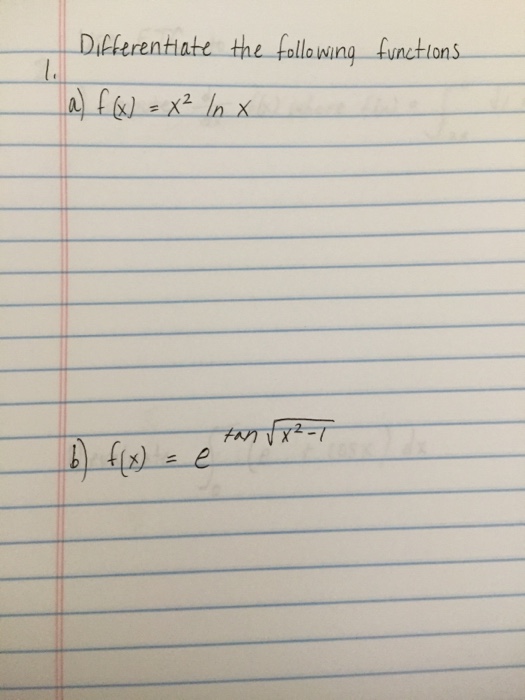 Differentiate the following functions
1.
a) f(x) = x² ln x
b) f(x) = e^(tan √(x²-1))